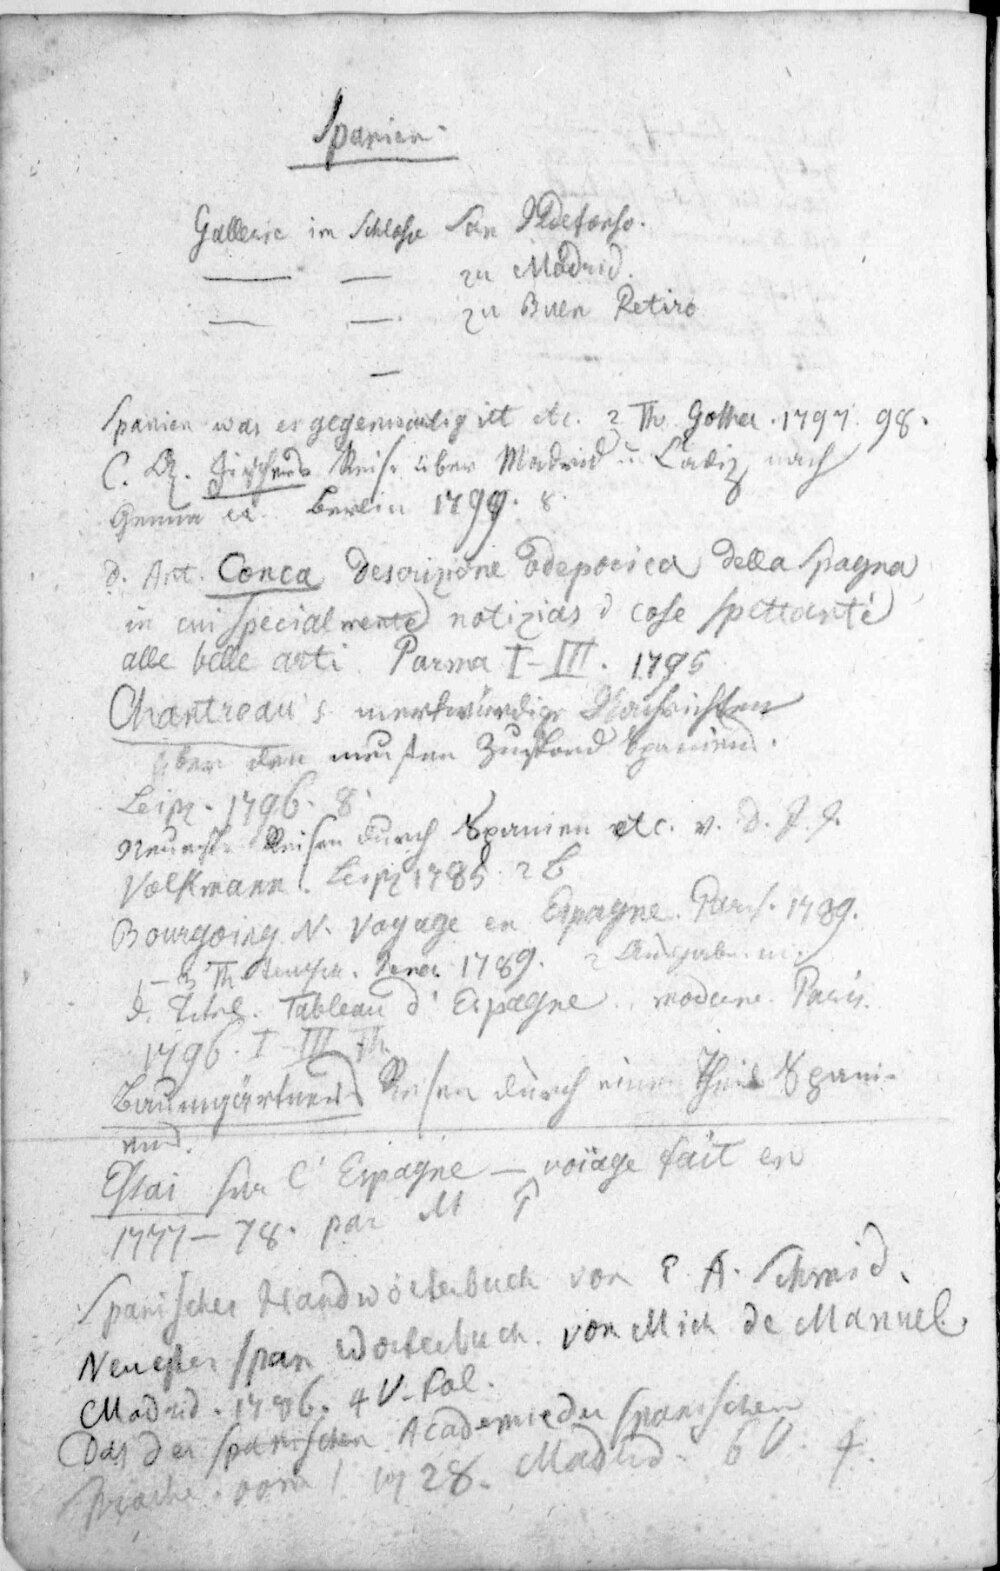 Spanien.
Gallerie im Schlosse San Ildefonso.
— — zu Madrid.
— — zu Buen Retiro
—
Spanien was es gegenwärtig ist etc. 2 Th. Gotha. 1797. 98.
C. A. Fischers Reise über Madrid u. Cadiz nach
Genua Berlin 1799. 8.
d. Ant. Conca Descrizione Odeporica della Spagna
in cui specialmente notizias d cose spettanti
alle belle arti Parma I-III. 1795
Chantreau's merkwürdige Nachrichten
über den neusten Zustand Spaniens.
Leipz. 1796. 8.
Neueste Reisen durch Spanien etc. v. D. J. J.
Volkmann. Leipz 1785. 2 B
Bourgoing N. Voyage en Espagne. Paris. 1789.
1-3 Th Jena 1789. 2 Ausgabe m.
d. Titel. Tableau d'Espagne moderne. Paris.
1796. I-III Th.
Baumgärtners Reisen durch einen Theil Spani-
ens.
Essai sur l'Espagne — voïage fait en
1777-78. par M P
Spanisches Handwörterbuch von E A. Schmid.
Neuestes span Wörterbuch. von Mich de Manuel.
Madrid. 1786. 4 V. Fol.
Das der spanischen Academie der spanischen
Sprache. vom 28. Madrid. 6 V. 4.